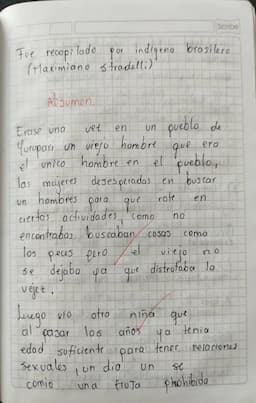 Fue recopilado por indigena brasilero
(Maximiano Stradelli)
Resumen
Erase una vez en un pueblo de
Yurupari un viejo hombre que era
el unico hombre en el pueblo,
las mujeres desesperadas en buscar
un hombres para que rote en
ciertas actividades, como no
encontrabas buscaban cosas como
los peces pero el viejo no
se dejaba ya que disfrutaba la
vejez.
Luego vio otra niña que
al pasar los años ya tenia
edad suficiente para tener relaciones
sexuales, un dia un se
comio una fruta prohibida